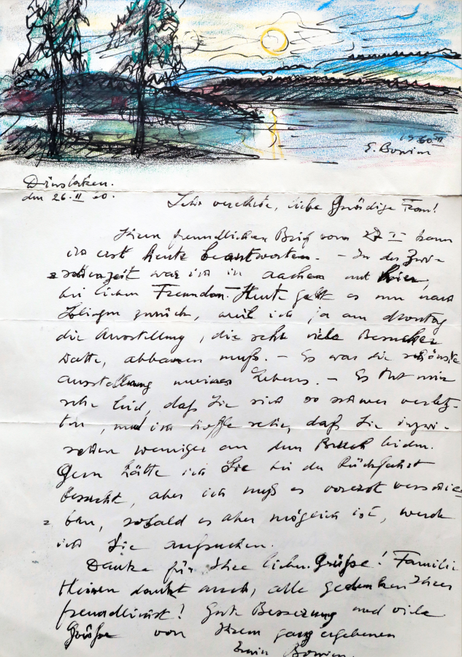 1960 II
E. Bowien
Dinslaken.
den 26. II 60.
Sehr verehrte, liebe Gnädige Frau!
Ihren freundlichen Brief vom 27 I kann
ich erst heute beantworten. – In der Zwi-
schenzeit war ich in Aachen und hier,
bei lieben Freunden – Heute geht es nun nach
Solingen zurück, weil ich ja am Montag
die Ausstellung, die sehr viele Besucher
hatte, abbauen muß. – Es war die schönste
Ausstellung meines Lebens. – Es tut mir
sehr leid, daß Sie sich so schwer verletz-
ten, und ich hoffe sehr, daß Sie inzwi-
schen weniger an dem Bruch leiden.
Gern hätte ich Sie bei der Rückfahrt
besucht, aber ich muß es vorerst verschie-
ben, sobald es aber möglich ist, werde
ich Sie aufsuchen.
Danke für Ihre lieben Grüße! Familie
dankt auch, alle gedenken Ihrer
freundlichst! Gute Besserung und viele
Grüße von Ihrem ganz ergebenen
Erwin Bowien